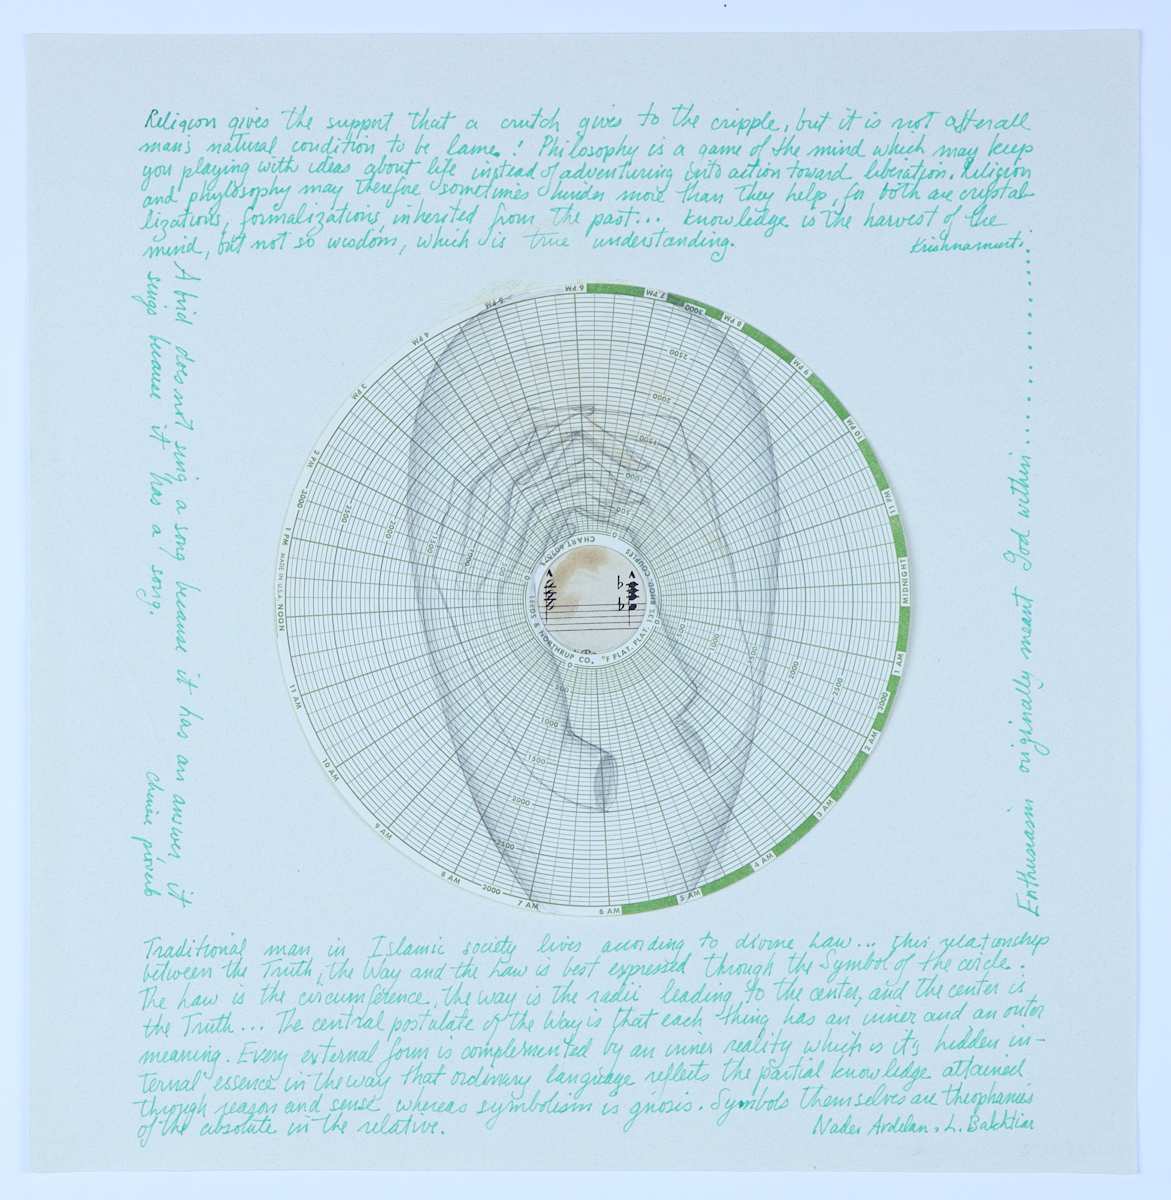 Religion gives the support that a crutch gives to the cripple, but it is not after all
man's natural condition to be lame! Philosophy is a game of the mind which may keep
you playing with ideas about life instead of adventuring into action toward liberation. Religion
and phylosophy may therefore sometimes hinder more than they help, for both are crystal-
lizations, formalizations, inherited from the past... Knowledge is the harvest of the
mind, but not so wisdom, which is true understanding.
Krishnamurti
A bird does not sing a song because it has an answer, it
sings because it has a song.
chinese proverb
Enthusiasm originally meant God within..................
6 PM
7 PM
3000
8 PM
9 PM
10 PM
11 PM
MIDNIGHT
1 AM
2000
2 AM
3 AM
4 AM
5 AM
6 AM
7 AM
2000
8 AM
9 AM
10 AM
11 AM
NOON
MADE IN U.S.A.
1 PM
3000
2 PM
3 PM
4 PM
5 PM
2500
2000
1500
1000
500
0
2500
2000
1500
1000
500
0
500
1000
1500
2000
2500
0
500
1000
1500
2000
2500
CHART
LEEDS & NORTHRUP CO.
°F FLAT. PLAT. 13% RHOD. COUPLES
Traditional man in Islamic society lives according to divine Law... this relationship
between the Truth, the Way and the Law is best expressed through the Symbol of the circle.
The Law is the circumference, the way is the radii leading to the center, and the center is
the Truth... The central postulate of the Way is that each thing has an inner and an outer
meaning. Every external form is complemented by an inner reality which is its hidden in-
ternal essence in the way that ordinary language reflects the partial knowledge attained
through reason and sense whereas symbolism is gnosis. Symbols themselves are theophanies
of the absolute in the relative.
Nader Ardelan, L. Bakhtiar